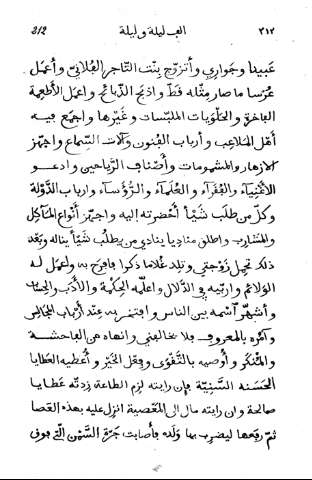 ٣١٢ الف ليلة وليلة 312
عبيدا وجواري واتزوج بنت التاجر الفلاني واعمل
عرسا ما صار مثله قط واذبح الذبائح واعمل الاطعمة
الفاخرة والحلويات الملبسات وغيرها واجمع فيه
اهل الملاعب وارباب الفنون وآلات السماع واجهز
الازهار والمشمومات واصناف الرياحين وادعو
الاغنياء والفقراء والعلماء والرؤساء وارباب الدولة
وكل من طلب شيأ احضرته اليه واجهز انواع المآكل
والمشارب واطلق مناديا ينادي من يطلب شيأ يناله وبعد
ذلك تحبل زوجتي وتلد غلاما ذكرا فافرح به واعمل له
الولائم واربيه في الدلال واعلمه الحكمة والادب والحساب
واشهر اسمه بين الناس وافتخر به عند ارباب المجالس
وآمره بالمعروف فلا يخالفني وانهاه عن الفاحشة
والمنكر واوصيه بالتقوى وفعل الخير واعطيه العطايا
الحسنه السنية فان رايته لزم الطاعة زدته عطايا
صالحة وان رايته مال الى المعصية انزل عليه بهذه العصا
ثم رفعها ليضرب بها ولده فاصابت جرة السمن التي فوق